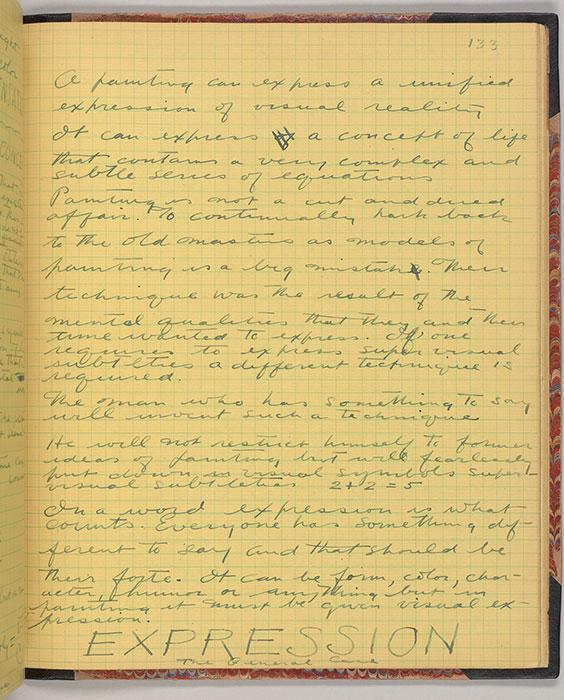 133
A painting can express a unified
expression of visual reality
It can express a concept of life
that contains a very complex and
subtle series of equations
Painting is not a cut and dried
affair. To continually hark back
to the old masters as models of
painting is a big mistake. Their
technique was the result of the
mental qualities that they and their
time wanted to express. If one
requires to express super visual
subtlties a different technique is
required.
The man who has something to say
will invent such a technique
He will not restrict himself to former
ideas of painting but will fearlessly
put down in visual symbols super-
visual subtleties 2+2=5
In a word expression is what
counts. Everyone has something dif-
ferent to say and that should be
their forte. It can be form, color, char-
acter, humor or anything but in
painting it must be given visual ex-
pression.
EXPRESSION
The General Case